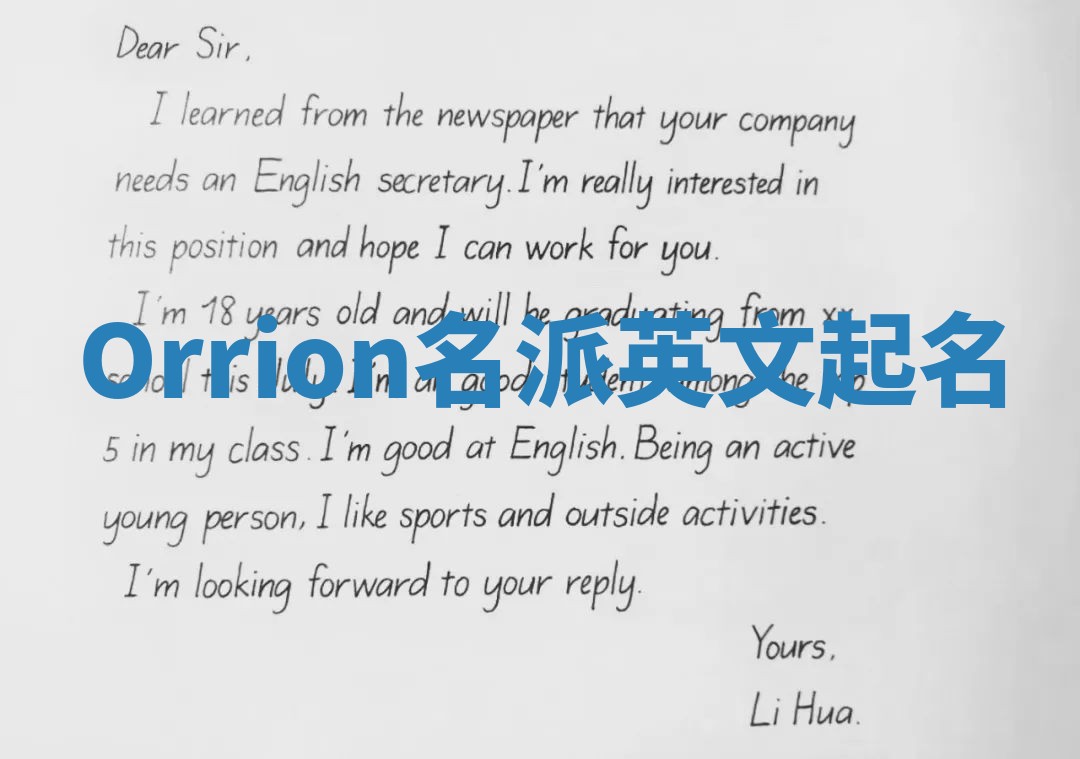 Dear Sir,
I learned from the newspaper that your company
needs an English secretary. I'm really interested in
this position and hope I can work for you.
I'm 18 years old and will be graduating from xx
Orrion名派英文起名
school this July. I'm a good student among the top
5 in my class. I'm good at English. Being an active
young person, I like sports and outside activities.
I'm looking forward to your reply.
Yours,
Li Hua.